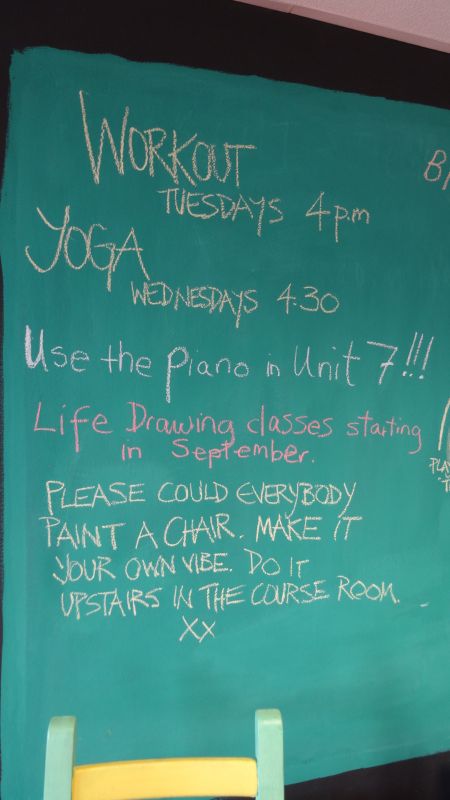 WORKOUT
TUESDAYS 4pm
YOGA
WEDNESDAYS 4.30
Use the Piano in Unit 7!!!
Life Drawing classes starting
in September.
PLEASE COULD EVERYBODY
PAINT A CHAIR. MAKE IT
YOUR OWN VIBE. DO IT
UPSTAIRS IN THE COURSE ROOM.
XX